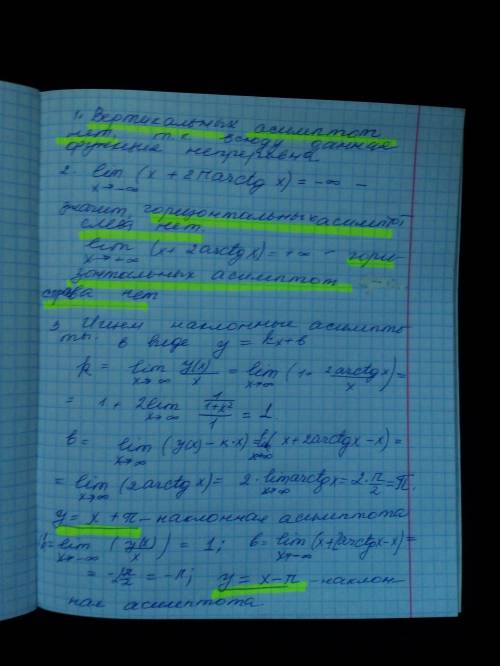 1. Вертикальных асимптот
нет, т.к. всюду данная
функция непрерывна
2. lim (x + 2 arctg x) = -∞ -
x→-∞
значит, горизонтальных асимптот
слева нет.
lim (x + 2arctgx) = +∞ - гори-
x→+∞
зонтальных асимптот
справа нет
3. Ищем наклонные асимпто
ты: в виде y = kx+b
k = lim y(x)/x = lim (1 + 2arctgx/x) =
x→∞ x→∞
= 1 + 2lim (1/(1+x²))/1 = 1
x→∞
b = lim (y(x) - k·x) = lim x + 2arctgx - x) =
x→∞ x→∞
= lim (2arctgx) = 2·lim arctgx = 2·π/2 = π.
x→∞ x→∞
y = x + π - наклонная асимптота
k = lim (y(x)/x) = 1; b = lim (x+2arctgx-x) =
x→-∞ x→-∞
= -2π/2 = -π; y = x-π - наклон
ная асимптота